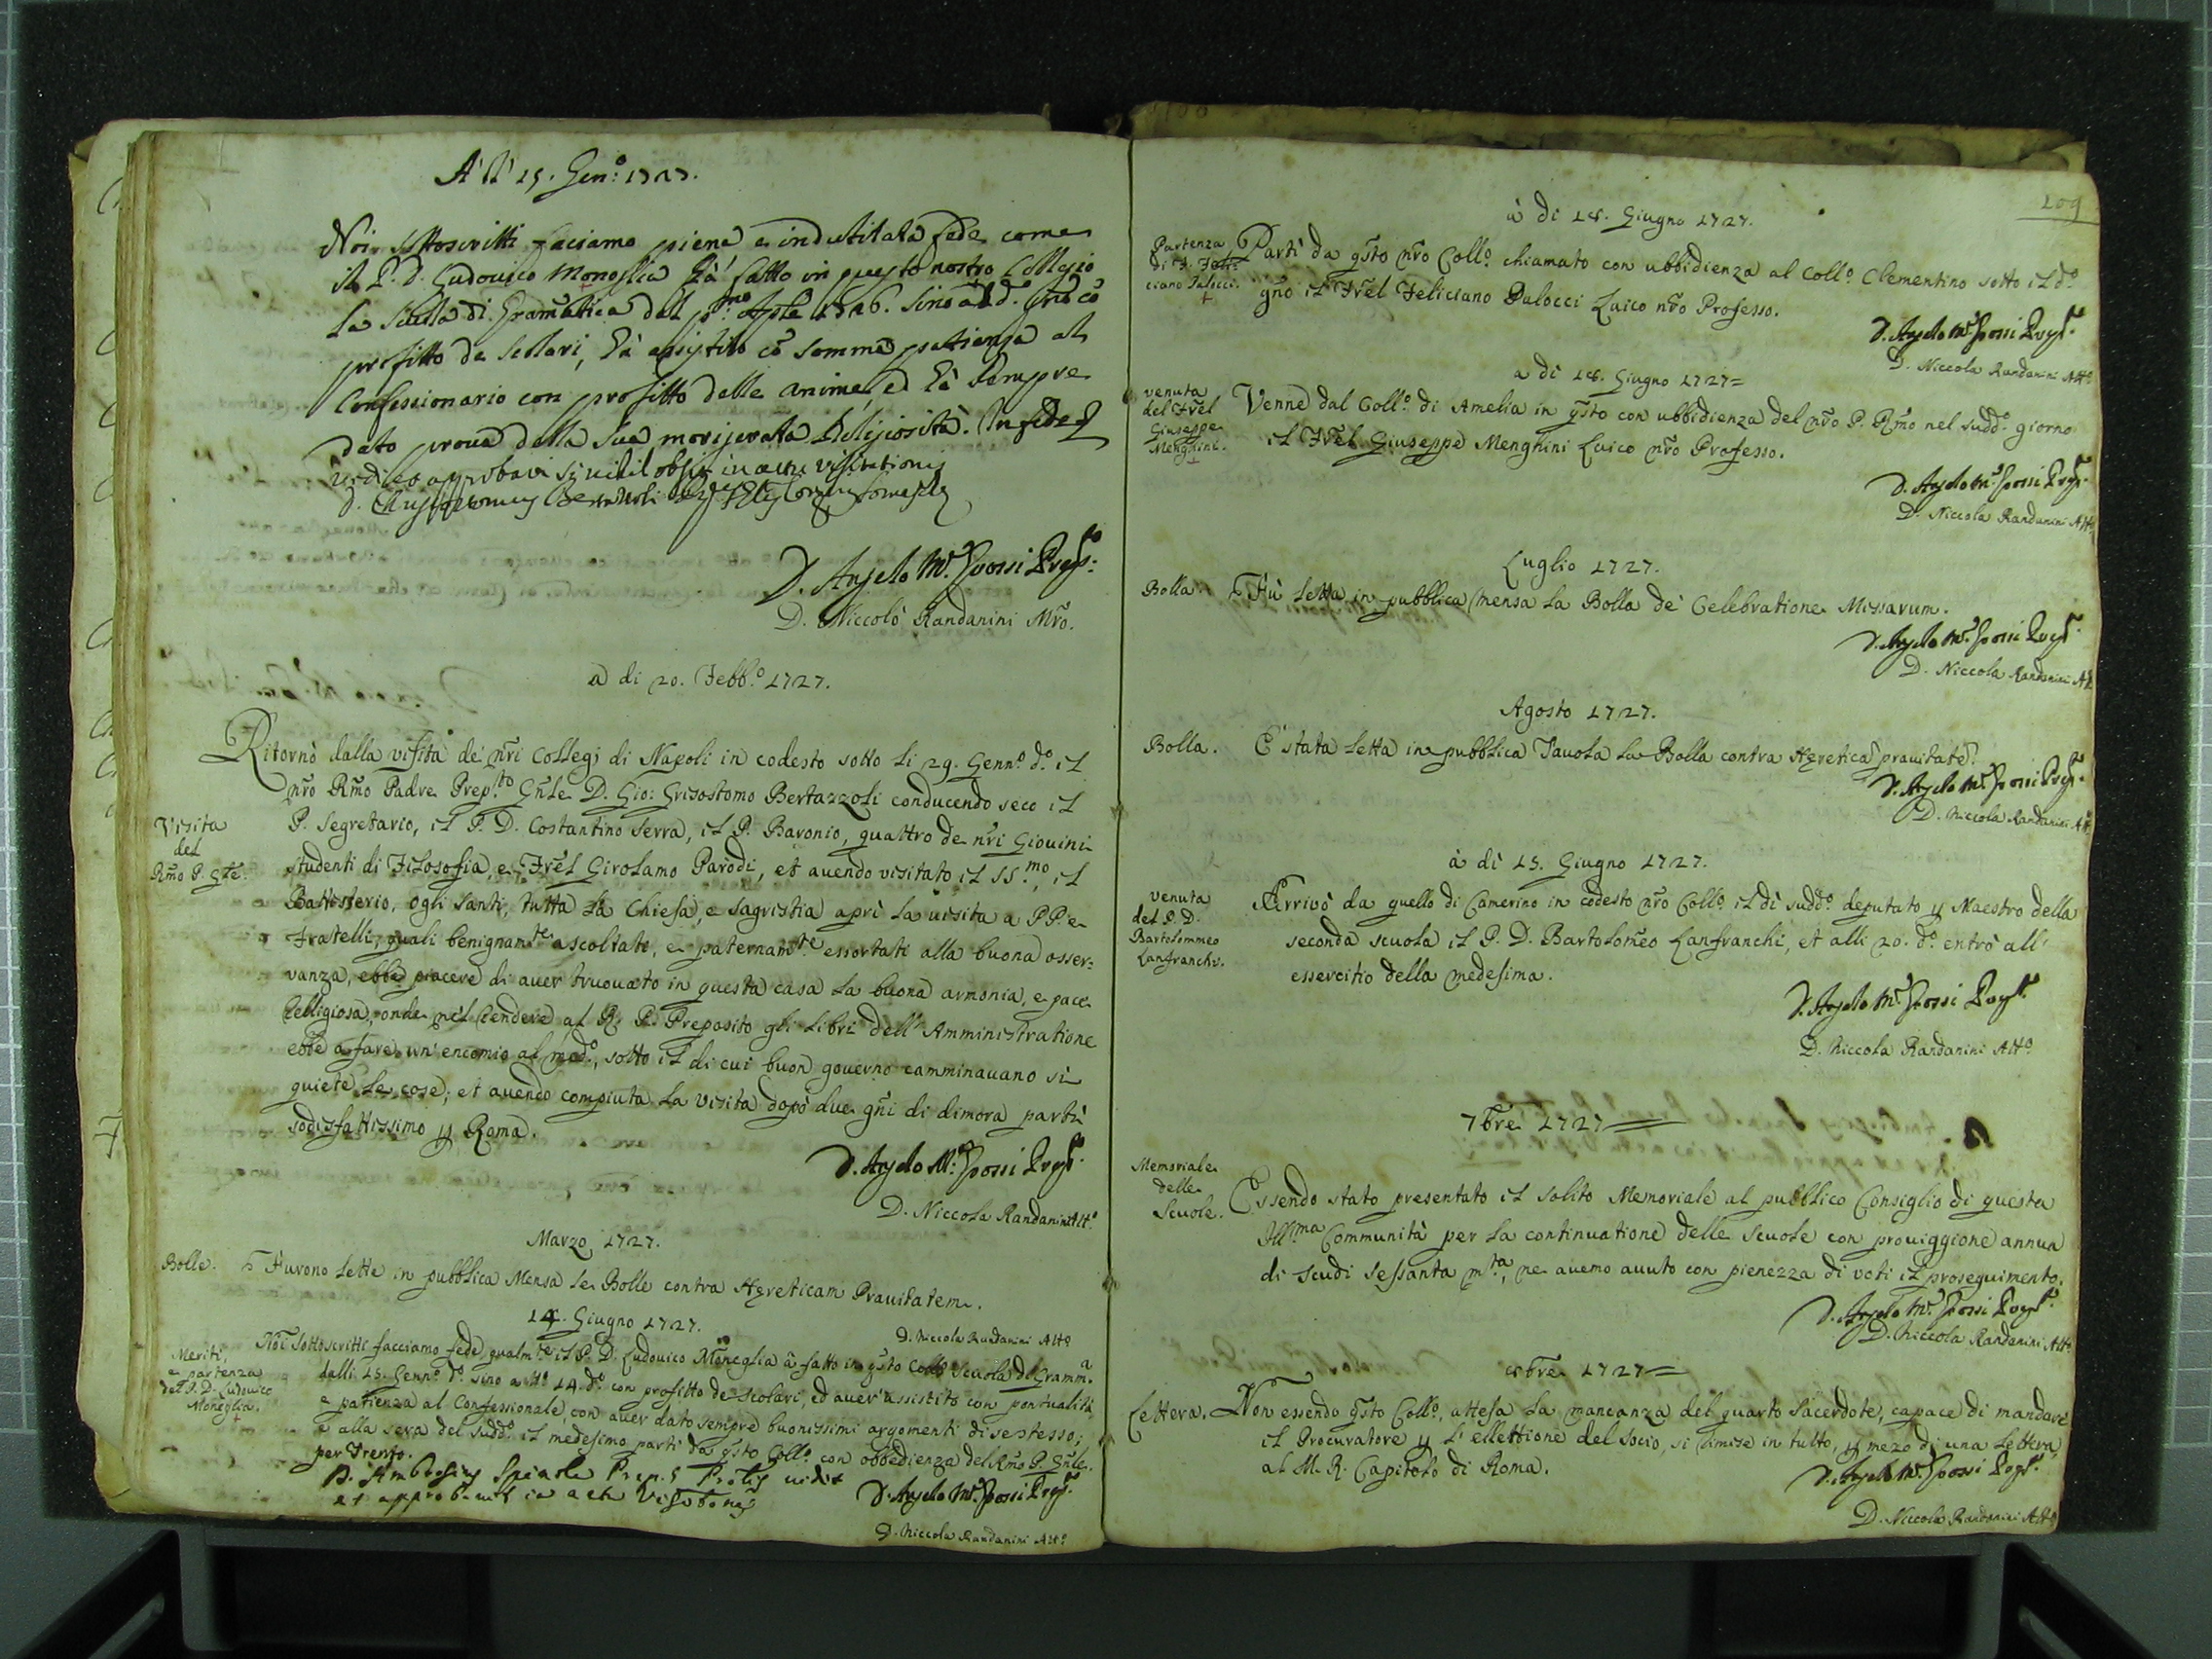 A dì 15. Gen:o 1727.
Noi sottoscritti facciamo piena e indubitata fede come
il P. D. Ludovico Moneglia hà fatto in questo nostro Collegio
la Scuola di Gramãtica dal pmo Aple 1726. sino al dº. gno cõ
profitto de scolari, hà assistito cõ somma patienza al
Confessionario con profitto delle anime, ed hà sempre
dato prove della sua morigerata Religiosità. In fede
vidi et approbavi si nihil obsit in actu visitationis
D. Angelo M.ª Spossi Prep.to
D. Niccolò Randanini Mro.
a di 20. Febb.º 1727.
Ritornò dalla visita de' nri Collegi di Napoli in codesto sotto li 29. Genn.º d.º il
nrõ Rmõ Padre Prep.to Gnle D. Gio: Grisostomo Bertazzoli conducendo seco il
P. Segretario, il P. D. Costantino Serra, il P. Baronio, quattro de nri Giovini
Visita
del
Rmo P. Gle.
studenti di Filosofia, e Frel Girolamo Parodi, et avendo visitato il SS.mo, il
Battisterio, ogli Santi, tutta la Chiesa, e Sagristia aprì la visita a PP. e
Fratelli, quali benignam.te ascoltati, e paternam.te essortati alla buona osser-
vanza, ebbe piacere di aver truovato in questa casa la buona armonia, e pace
Religiosa, onde nel rendere al R. P. Preposito gli libri dell'Amministratione
ebbe a fare un'encomio al med.º, sotto il di cui buon governo camminavano sì
quiete le cose; et avendo compiuta la visita dopo due gni di dimora partì
sodisfattissimo p Roma.
D. Angelo M.ª Spossi Prep.to
D. Niccola Randanini Att.º
Marzo 1727.
Bolle. Furono lette in pubblica Mensa le Bolle contra Hereticam Pravitatem.
D. Niccola Randanini Att.º
14. Giugno 1727.
Meriti,
e partenza
del P. D. Ludovico
Moneglia.
Noi sottoscritti facciamo fede qualm.te il P. D. Ludovico Moneglia à fatto in qsto Collº Scuola di Gramm.a
dalli 15. Genn.º d.º sino a li 14. d.º con profitto de scolari, ed aver assistito con pontualità
e patienza al Confessionale, con aver dato sempre buonissimi argomenti di se stesso;
e alla sera del sudd.º il medesimo partì da qsto Coll.º con obbedienza del Rmo P. Gnle.
per Trento.
D. Ambrosius Spinola Prep.s Prolis vidit
et approbavit in actu Visitationis
D. Angelo M.ª Spossi Prep.to
D. Niccola Randanini Att.º
109
à di 18. Giugno 1727.
Partenza
di F. Feli-
ciano Palocci.
Partì da qsto nro Coll.º chiamato con ubbidienza al Coll.º Clementino sotto il d.º
gno il Frel Feliciano Palocci Laico nro Professo.
D. Angelo M.ª Spossi Prep.to
D. Niccola Randanini Att.º
a di 18. Giugno 1727=
venuta
del Frel
Giuseppe
Menghini.
Venne dal Coll.º di Amelia in qsto con ubbidienza del nro P. Rmo nel sudd.º giorno
il Frel Giuseppe Menghini Laico nro Professo.
D. Angelo M.ª Spossi Prep.to
D. Niccola Randanini Att.º
Luglio 1727.
Bolla. Fù letta in pubblica Mensa la Bolla de Celebratione Missarum.
D. Angelo M.ª Spossi Prep.to
D. Niccola Randanini At
Agosto 1727.
Bolla. È stata letta in pubblica Tavola la Bolla contra Hereticã pravitatẽ.
D. Angelo M.ª Spossi Prep.to
D. Niccola Randanini Att
à di 15. Giugno 1727.
venuta
del P. D.
Bartolommeo
Lanfranchi.
Arrivò da quello di Camerino in codesto nro Coll.º il dì sudd.º deputato p Maestro della
seconda scuola il P. D. Bartolomeo Lanfranchi, et alli 20. d.º entrò all'
essercitio della medesima.
D. Angelo M.ª Spossi Prep.to
D. Niccola Randanini Att.º
7bre 1727
Memoriale
delle
Scuole.
Essendo stato presentato il solito Memoriale al pubblico Consiglio di questa
Ill.ma Communità per la continuatione delle Scuole con proviggione annua
di scudi sessanta m.ta, ne avemo avuto con pienezza di voti il proseguimento.
D. Angelo M.ª Spossi Prep.to
D. Niccola Randanini Att.º
8bre 1727=
Lettera. Non essendo qsto Coll.º, attesa la mancanza del quarto Sacerdote, capace di mandare
il Procuratore p l'ellettione del Socio, si rimise in tutto, p mezo di una lettera,
al M. R. Capitolo di Roma.
D. Angelo M.ª Spossi Prep.to
D. Niccola Randanini Att.º